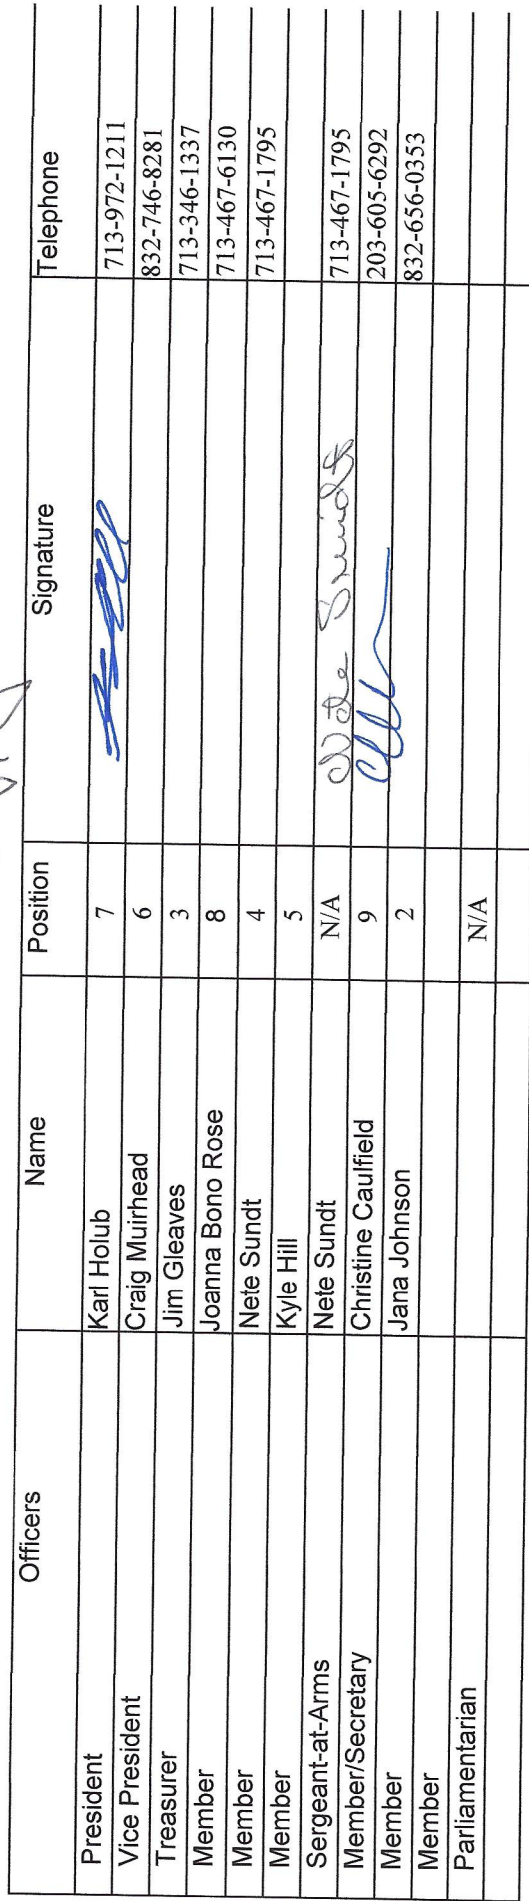 Officers Name Position Signature Telephone
President Karl Holub 7 713-972-1211
Vice President Craig Muirhead 6 832-746-8281
Treasurer Jim Gleaves 3 713-346-1337
Member Joanna Bono Rose 8 713-467-6130
Member Nete Sundt 4 713-467-1795
Member Kyle Hill 5
Sergeant-at-Arms Nete Sundt N/A Nete Sundt 713-467-1795
Member/Secretary Christine Caulfield 9 203-605-6292
Member Jana Johnson 2 832-656-0353
Member
Parliamentarian N/A